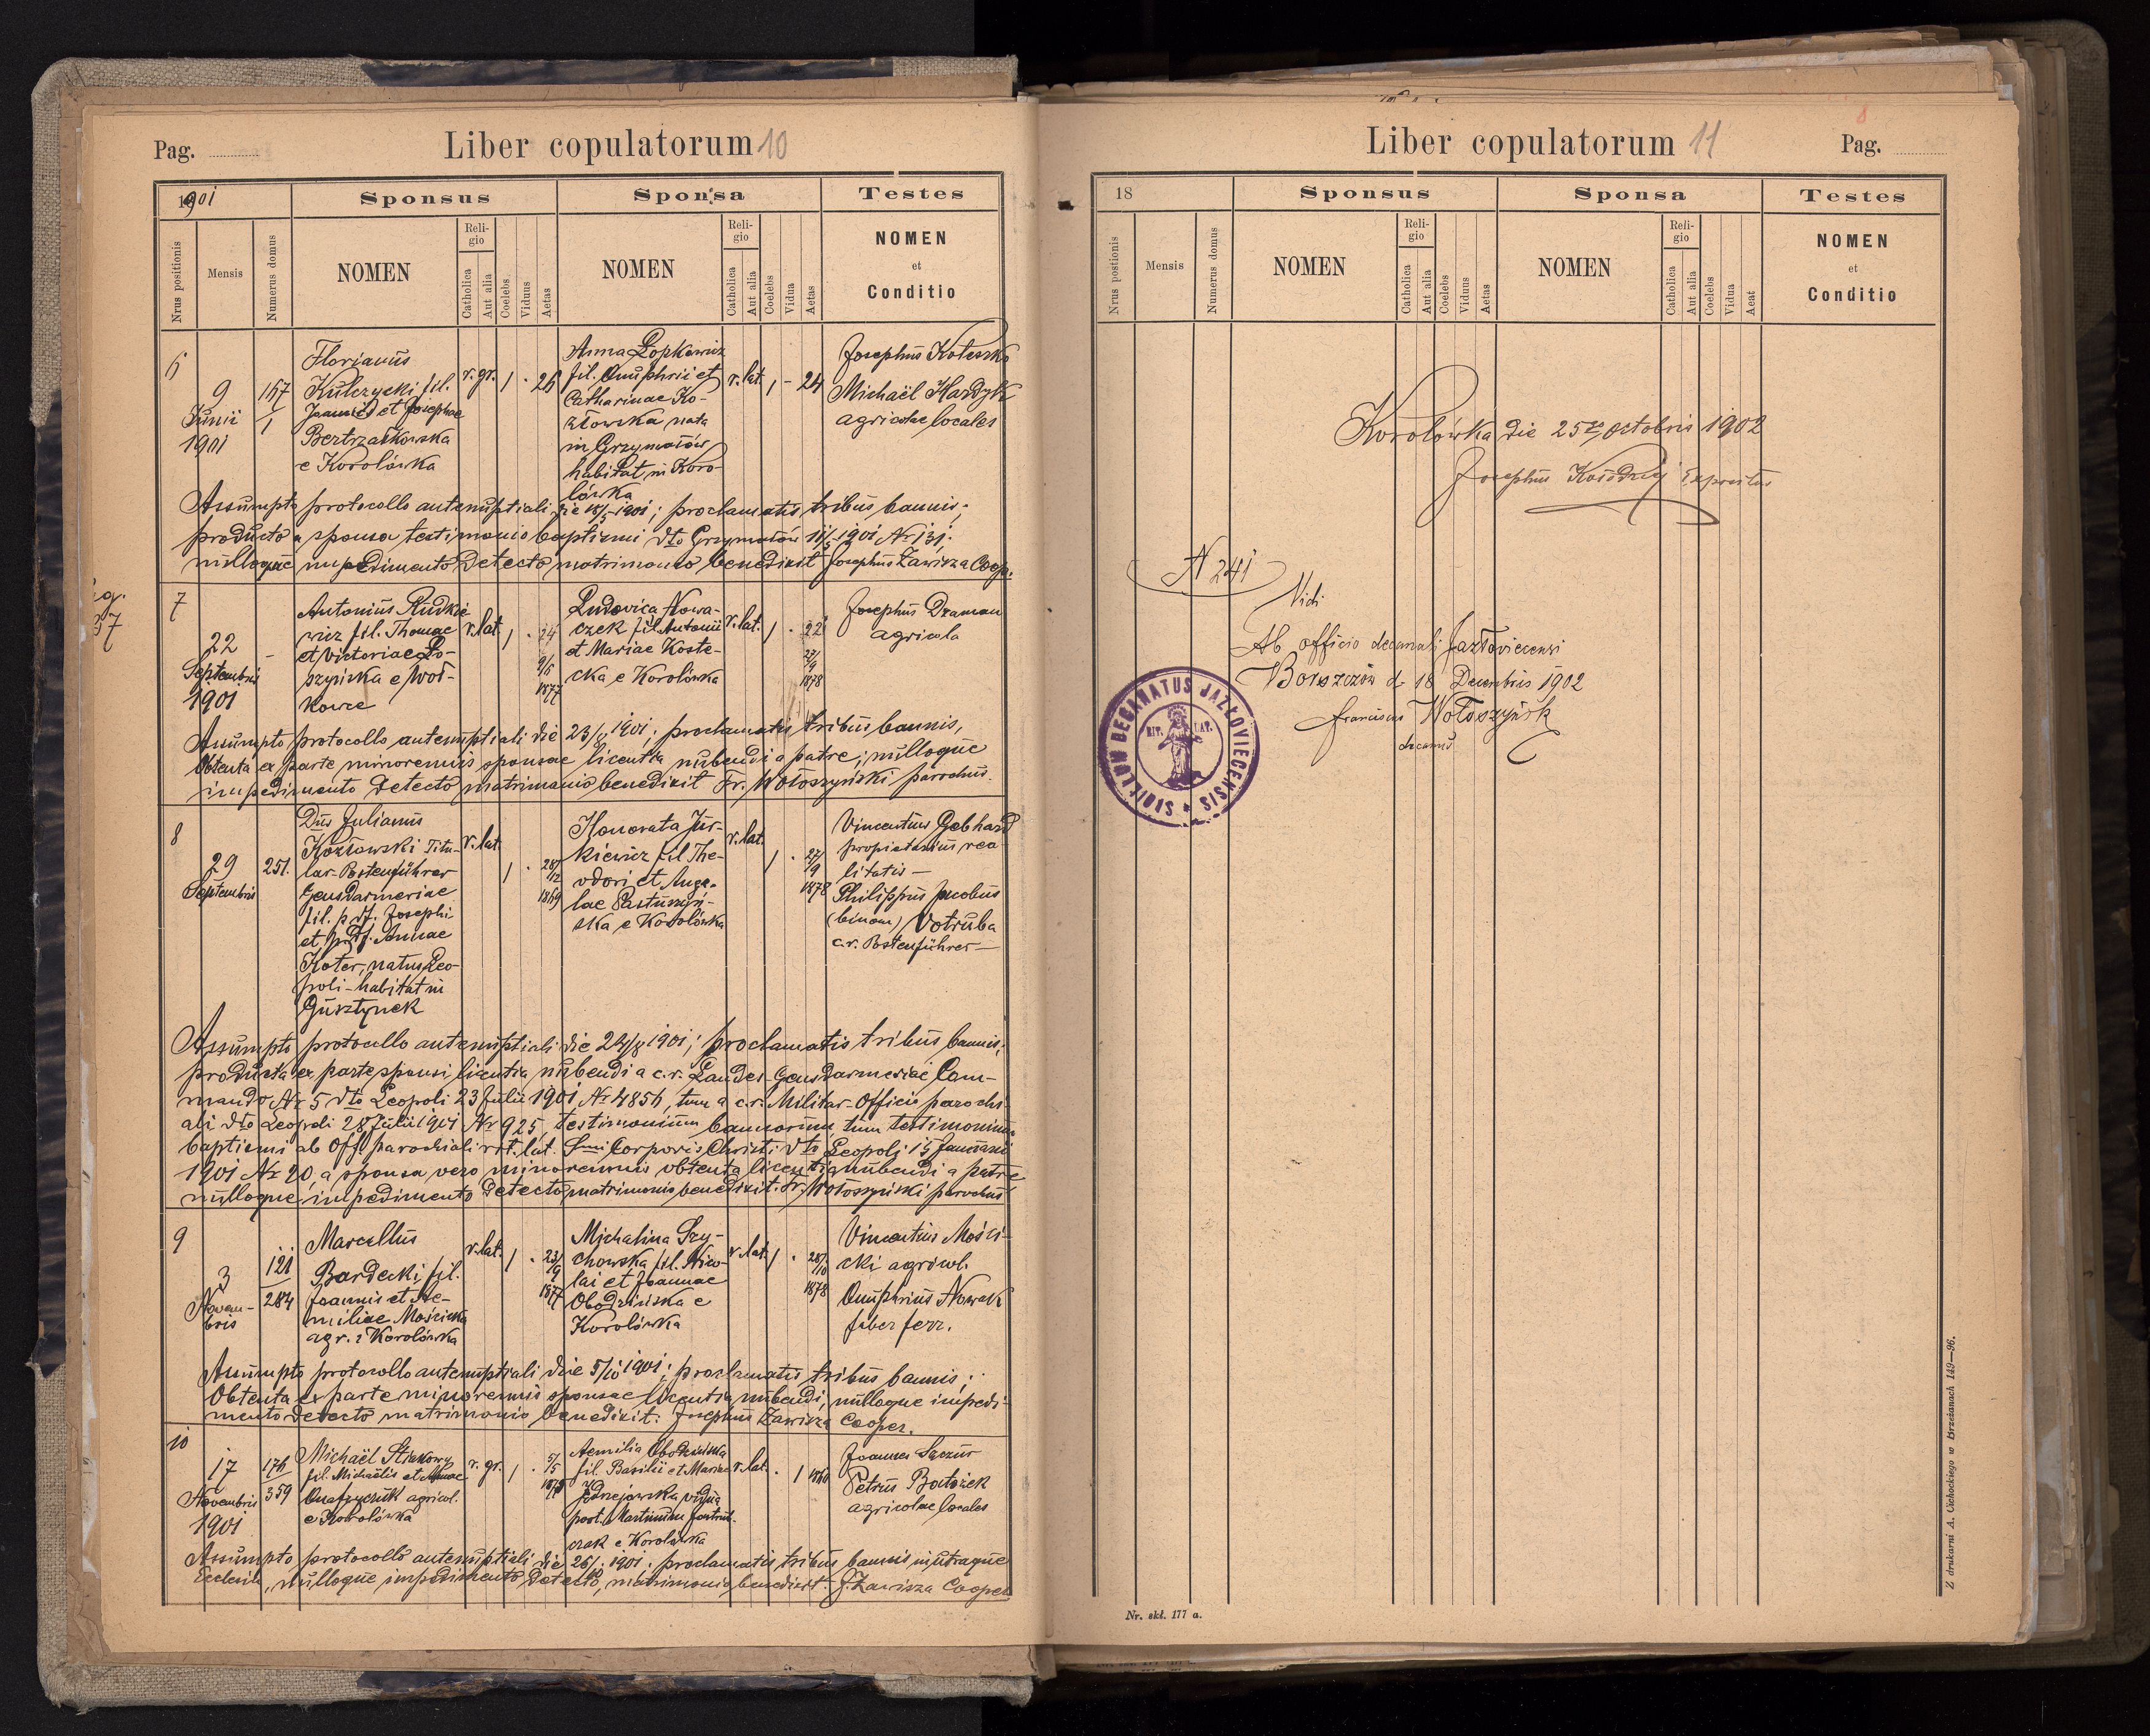 Pag.
Liber copulatorum 10
1901
Sponsus
Sponsa
Testes
Nrus positionis
Mensis
Numerus domus
NOMEN
Religio
Catholica
Aut alia
Coelebs
Viduus
Aetas
NOMEN
Religio
Catholica
Aut alia
Coelebs
Vidua
Aetas
NOMEN
et
Conditio
6
9
Junii
1901
167
1
Florianus
Kulczycki fil.
Joannis et Josephae
e Korolówka
r. gr.
1
26
Anna Łopkowicz
fil. Onuphrii et
Catharinae Ko-
złowska nata
in Grzymałów
habitat in Koro-
lówka
r. lat.
1
24
Josephus Koteszko
Michaël Hardyk
agricolae locales
Assumpto protocollo antenuptiali die 1901; proclamatis tribus bannis;
producto a sponsa testimonio baptismi dto Grzymałów 1901 Nr 131;
nulloque impedimento detecto matrimonio benedixit Josephus Zawisza Coop.
7
22
Septembris
1901
Antonius Rudkie-
wicz fil. Thomae
et Victoriae Ło-
szyńska e Woł-
kowce
r. lat.
1
24
9/6
1877
Ludovica Nowa-
czek fil. Antonii
et Mariae Koste-
cka e Korolówka
r. lat.
1
22
27/9
1878
Josephus Draman
agricola
Assumpto protocollo antenuptiali die 23/8 1901; proclamatis tribus bannis,
Obtenta ex parte minorennis sponsae licentia nubendi a patre; nulloque
impedimento detecto matrimonio benedixit Fr. Wołoszyński parochus.
8
29
Septembris
251.
Dnus Julianus
Kozłowski Titu-
lar-Postenführer
Gensdarmeriae
fil. p. df. Josephi
et p. df. Annae
Koter, natus Leo-
poli - habitat in
Gusztynek
r. lat.
1
28/12
1869
Honorata Jur-
kiewicz fil. The-
odori et Ange-
lae Pastuszyń-
ska e Korolówka
r. lat.
1
27/9
1878
Vincentius Gebhard
propietarius rea-
litatis -
Philippus Jacobus
(binom) Votruba
c.r. Postenführer -
Assumpto protocollo antenuptiali die 24/8 1901; proclamatis tribus bannis;
producta ex parte sponsi licentia nubendi a c.r. Landes-Gensdarmeriae Com-
mando Nr 5 dto Leopoli 23 Julii 1901 Nr 4856, tum a c.r. Militar-Officio parochi-
ali dto Leopoli 28 Julii 1901 Nr 925, testimonium bannorum tum testimonium
baptismi ab Off. parochiali rit. lat. Smi Corporis Christi dto Leopoli 15 Januarii
1901 Nr 20, a sponsa vero minorennis obtenta licentia nubendi a patre
nulloque impedimento detecto, matrimonio benedixit. Fr. Wołoszyński parochus
9
3
Novem-
bris
121
284
Marcellus
Bardecki fil.
Joannis et Ae-
miliae Mościcka
agr. e Korolówka
r. lat.
1
23/9
1877
Michalina Szy-
chowska fil. Nico-
lai et Joannae
Obodzińska e
Korolówka
r. lat.
1
28/10
1878
Vincentius Mości-
cki agricol.
Onuphrius Nowak
faber ferr.
Assumpto protocollo antenuptiali die 5/10 1901; proclamatis tribus bannis;
Obtenta ex parte minorennis sponsae licentia nubendi, nulloque impedi-
mento detecto matrimonio benedixit: Josephus Zawisza Cooper.
10
17
Novembris
1901
176
359
Michaël
fil. Michaëlis et Annae
agricol.
e Korolówka
r. gr.
1
5/5
Aemilia Obodzińska
fil. Basilii et Mariae
Jędrzejowska vidua
post Martinum
e Korolówka
r. lat.
1
1860
Joannes Szczur
Petrus Batożek
agricolae locales
Assumpto protocollo antenuptiali die 26/10 1901; proclamatis tribus bannis in utraque
Ecclesia, nulloque impedimento detecto, matrimonio benedixit. J. Zawisza Cooper
Liber copulatorum 11
8
Pag.
18
Sponsus
Sponsa
Testes
Nrus postionis
Mensis
Numerus domus
NOMEN
Religio
Catholica
Aut alia
Coelebs
Viduus
Aetas
NOMEN
Religio
Catholica
Aut alia
Coelebs
Vidua
Aeat
NOMEN
et
Conditio
Korolówka die 25 octobris 1902
Josephus Expositus
N 241
Vidi
Ab officio decanali Jazłoviecensi
Borszczów d. 18 Decembris 1902
Franciscus Wołoszyński
decanus
SIGILLUM DECANATUS JAZŁOVIECENSIS
RIT. LAT.
Nr. skł. 177 a.
Z drukarni A. Cichockiego w Brzeżanach 149—96.